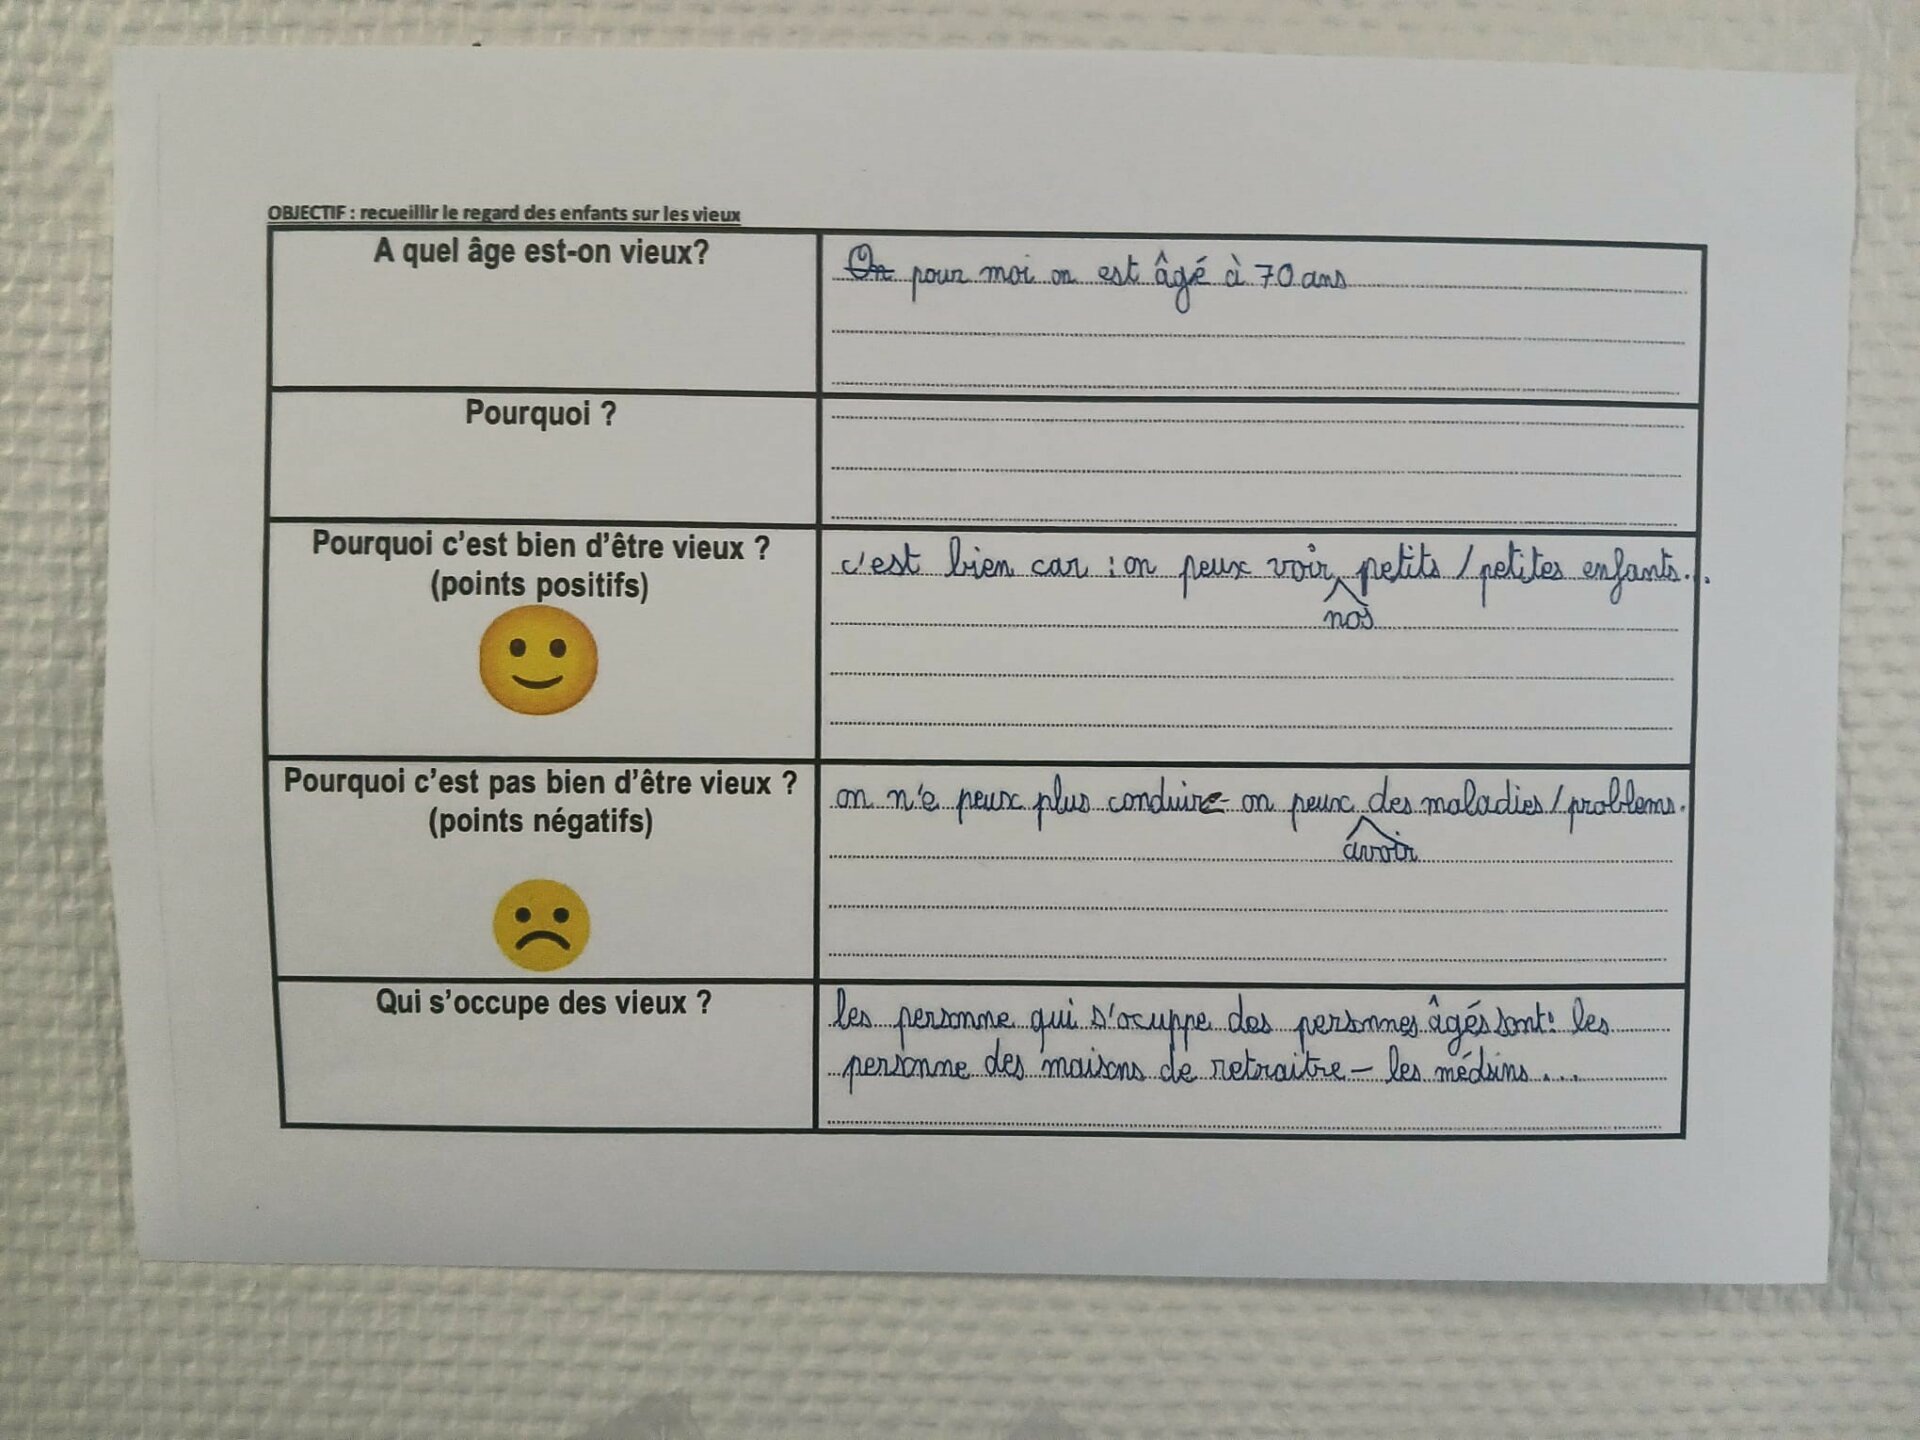 OBJECTIF : recueillir le regard des enfants sur les vieux
A quel âge est-on vieux?
On pour moi on est âgé à 70 ans
Pourquoi ?
Pourquoi c'est bien d'être vieux ?
(points positifs)
c'est bien car : on peux voir petits / petites enfants...
nos
Pourquoi c'est pas bien d'être vieux ?
(points négatifs)
on n'e peux plus conduire - on peux des maladies / problems.
avoir
Qui s'occupe des vieux ?
les personne qui s'ocuppe des personnes âgés sont: les
personne des maisons de retraitre - les médsins ...